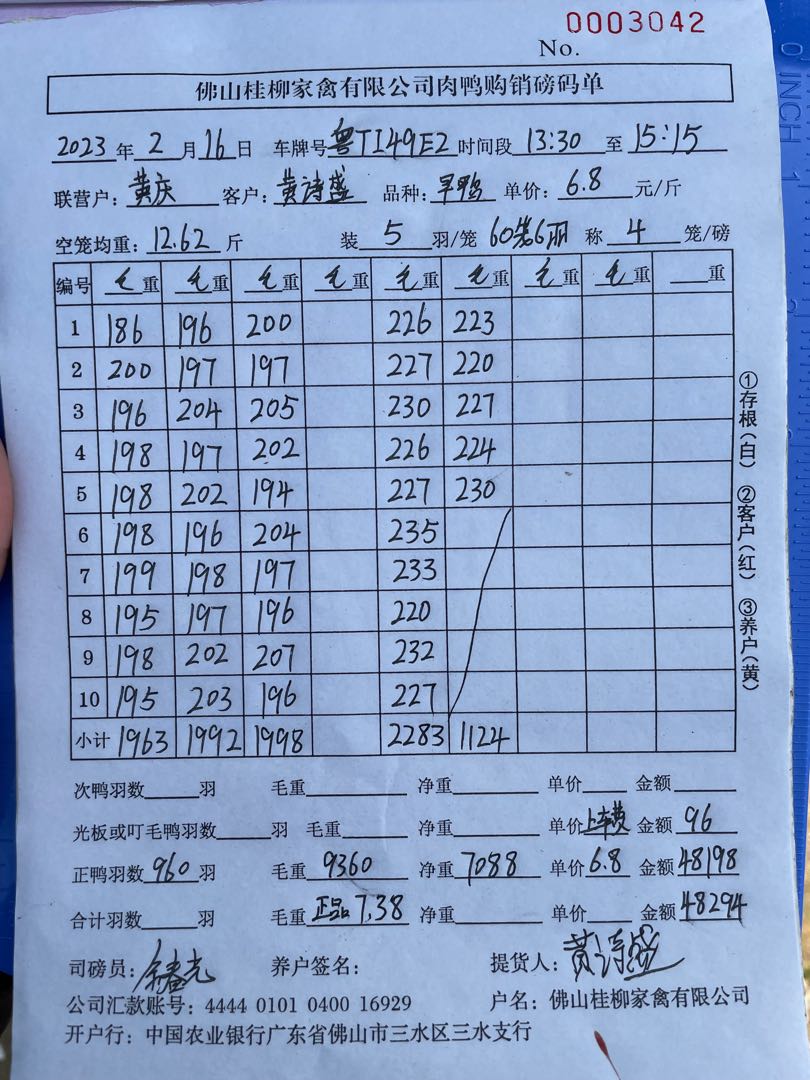 0003042
No.
佛山桂柳家禽有限公司肉鸭购销磅码单
2023年2月16日 车牌号粤TI49E2时间段13:30至15:15
联营户：黄庆 客户：黄诗盛 品种：早鸭 单价：6.8元/斤
空笼均重：12.62斤 装5羽/笼 60装6羽 称4笼/磅
编号 毛重 毛重 毛重 毛重 毛重 毛重 毛重 毛重 重
1 186 196 200 226 223
2 200 197 197 227 220
3 196 204 205 230 227
4 198 197 202 226 224
5 198 202 194 227 230
6 198 196 204 235
7 199 198 197 233
8 195 197 196 220
9 198 202 207 232
10 195 203 196 227
小计 1963 1992 1998 2283 1124
次鸭羽数 羽 毛重 净重 单价 金额
光板或叮毛鸭羽数 羽 毛重 净重 单价上车费 金额96
正鸭羽数960羽 毛重9360 净重7088 单价6.8 金额48198
合计羽数 羽 毛重正品7.38 净重 单价 金额48294
司磅员：余春光 养户签名： 提货人：黄诗盛
公司汇款账号：4444 0101 0400 16929 户名：佛山桂柳家禽有限公司
开户行：中国农业银行广东省佛山市三水区三水支行
①存根（白） ②客户（红） ③养户（黄）
0 INCH 1